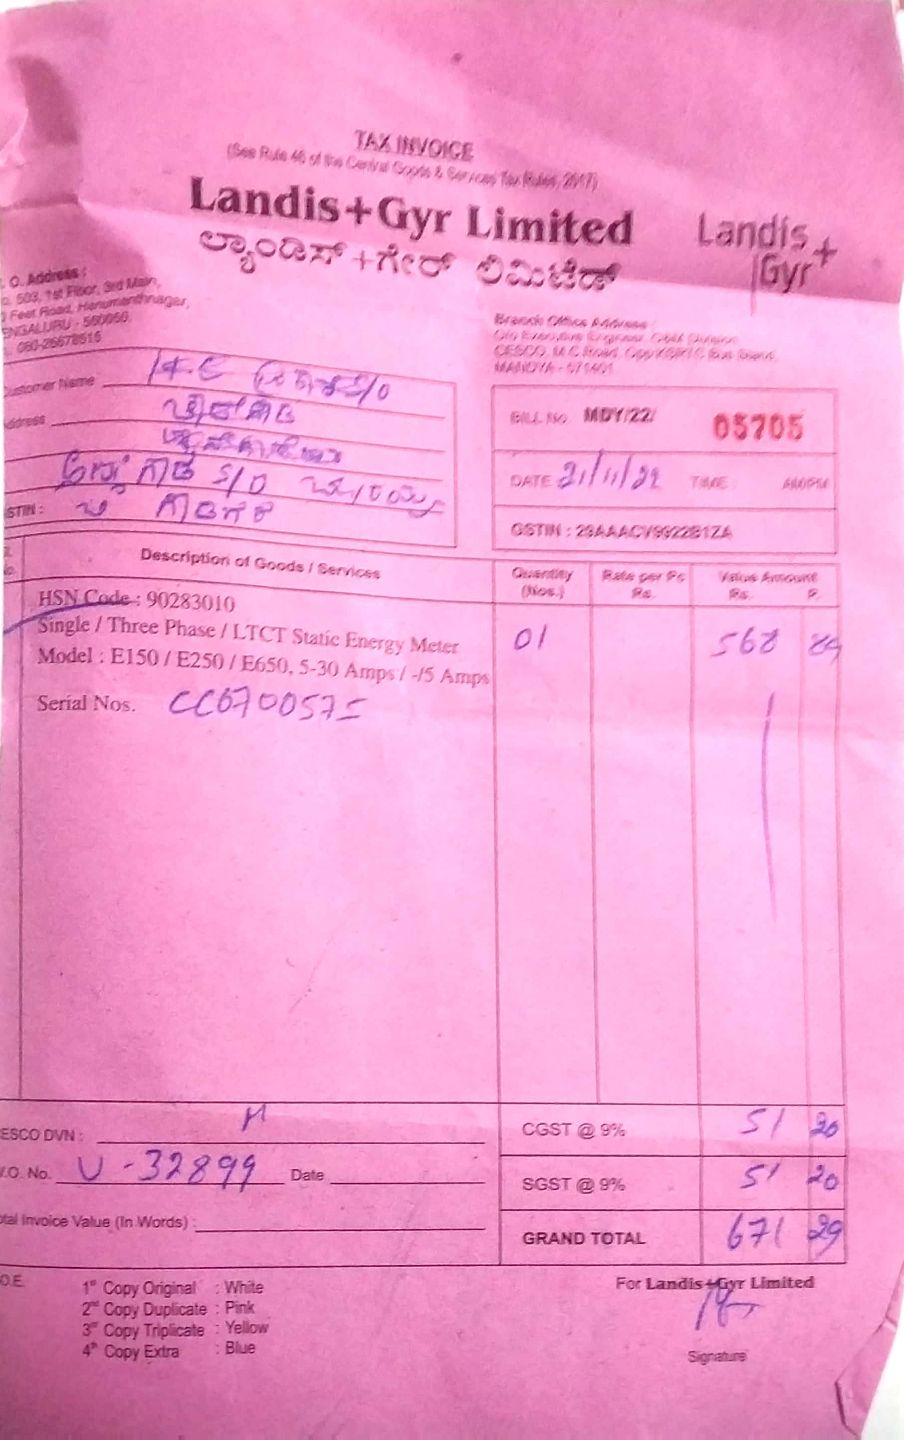 TAX INVOICE
(See Rule 46 of the Central Goods & Services Tax Rules, 2017)
Landis+Gyr Limited
Landis+
Gyr
ಲ್ಯಾಂಡಿಸ್ +ಗೇರ್ ಲಿಮಿಟೆಡ್
O. Address :
503, 1st Floor, 3rd Main,
Feet Road, Hanumanthnagar,
ENGALURU - 560050
080-26678515
Branch Office Address :
O/o Executive Engineer, O&M Division
CESCO, M.C Road, Opp KSRTC Bus Stand,
MANDYA - 571401
ustomer Name
ddress
S/O
STIN :
BILL No. MDY/22/ 05705
DATE 21/11/22 TIME : AM/PM
GSTIN : 29AAACV9922B1ZA
Description of Goods / Services
Quantity (Nos.)
Rate per Pc Rs.
Value Amount Rs. P.
HSN Code : 90283010
Single / Three Phase / LTCT Static Energy Meter 01 568 89
Model : E150 / E250 / E650, 5-30 Amps / -/5 Amps
Serial Nos. CC6700575
ESCO DVN : M
CGST @ 9% 51 20
.O. No. U-32899 Date
SGST @ 9% 51 20
tal Invoice Value (In Words) :
GRAND TOTAL 671 29
O.E.
1st Copy Original : White
2nd Copy Duplicate : Pink
3rd Copy Triplicate : Yellow
4th Copy Extra : Blue
For Landis+Gyr Limited
Signature